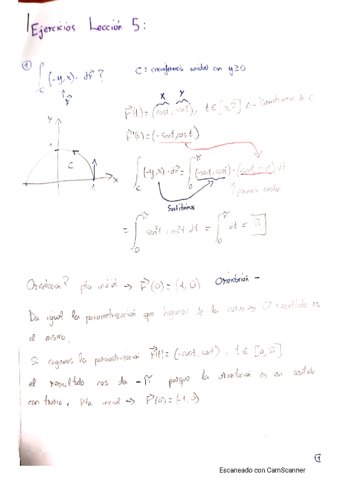 Ejercicios Lección 5:
① ∫_C (-y,x)·dr⃗ ? C = circunferencia unidad con y≥0
F⃗
x y
r⃗(t) = (cost, sint), t∈[0,π] ←
r⃗'(t) = (-sint, cost)
y
C
∫_C (-y,x)·dr⃗ = ∫_0^π (-sint, cost)·(-sint, cost) dt
x
1
Sustituimos
= ∫_0^π sin²t + cos²t dt = ∫_0^π dt = π
Orientación? pto inicial → r⃗(0) = (1,0) Orientación -
Da igual la parametrización que hagamos de la curva → el resultado es
el mismo.
Si cogemos la parametrización r⃗(t) = (-cost, sint), t∈[0,π]
el resultado nos da -π porque la orientación es en sentido
contrario. Pto inicial → r⃗(0) = (-1,0)
Escaneado con CamScanner